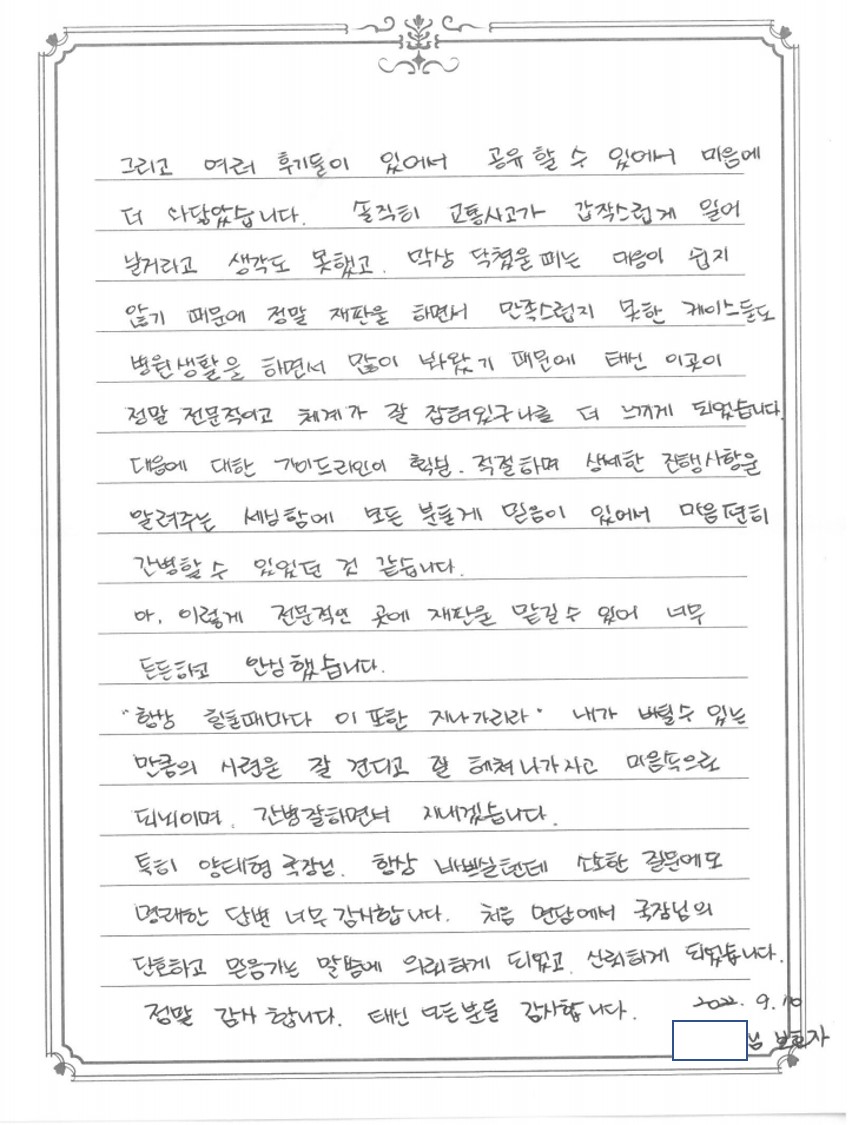 그리고 여러 후기들이 있어서 공유할 수 있에서 마음에
더 와닿았습니다. 솔직히 교통사고가 갑작스럽게 일어
날거라고 생각도 못했고. 막상 닥쳤을때는 대응이 쉽지
않기 때문에 정말 재판을 하면서 만족스럽지 못한 케이스들도
병원생활을 하면서 많이 봐왔기 때문에 태신 이곳이
정말 전문적이고 체계가 잘 잡혀있구나를 더 느끼게 되었습니다.
대응에 대한 가이드라인이 확실. 적절하며 상세한 진행사항을
알려주는 세심함에 모든 분들께 믿음이 있어서 마음편히
간병할 수 있었던 것 같습니다.
아. 이렇게 전문적인 곳에 재판을 맡길 수 있어 너무
든든하고 안심했습니다.
"항상 힘들때마다 이 또한 지나가리라" 내가 버틸수 있는
만큼의 시련을 잘 견디고 잘 헤쳐나가자고 마음속으로
되뇌이며. 간병잘하면서 지내겠습니다.
특히 양태형 국장님. 항상 바쁘실텐데 소소한 질문에도
명쾌한 답변 너무 감사합니다. 처음 면담에서 국장님의
단호하고 믿음가는 말씀에 의뢰하게 되었고. 신뢰하게 되었습니다.
정말 감사 합니다. 태신 모든분들 감사합니다.
2022. 9. 10
님 보호자